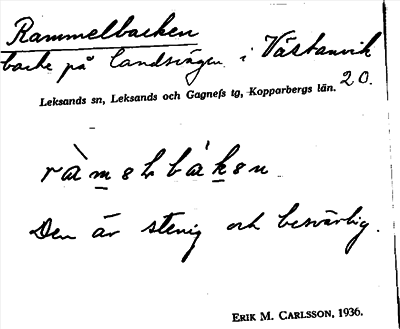 Rammelbacken
backe på landsvägen i Västanvik
20.
Leksands sn, Leksands och Gagnefs tg, Kopparbergs län.
ràməlbákən
Den är stenig och besvärlig.
ERIK M. CARLSSON, 1936.